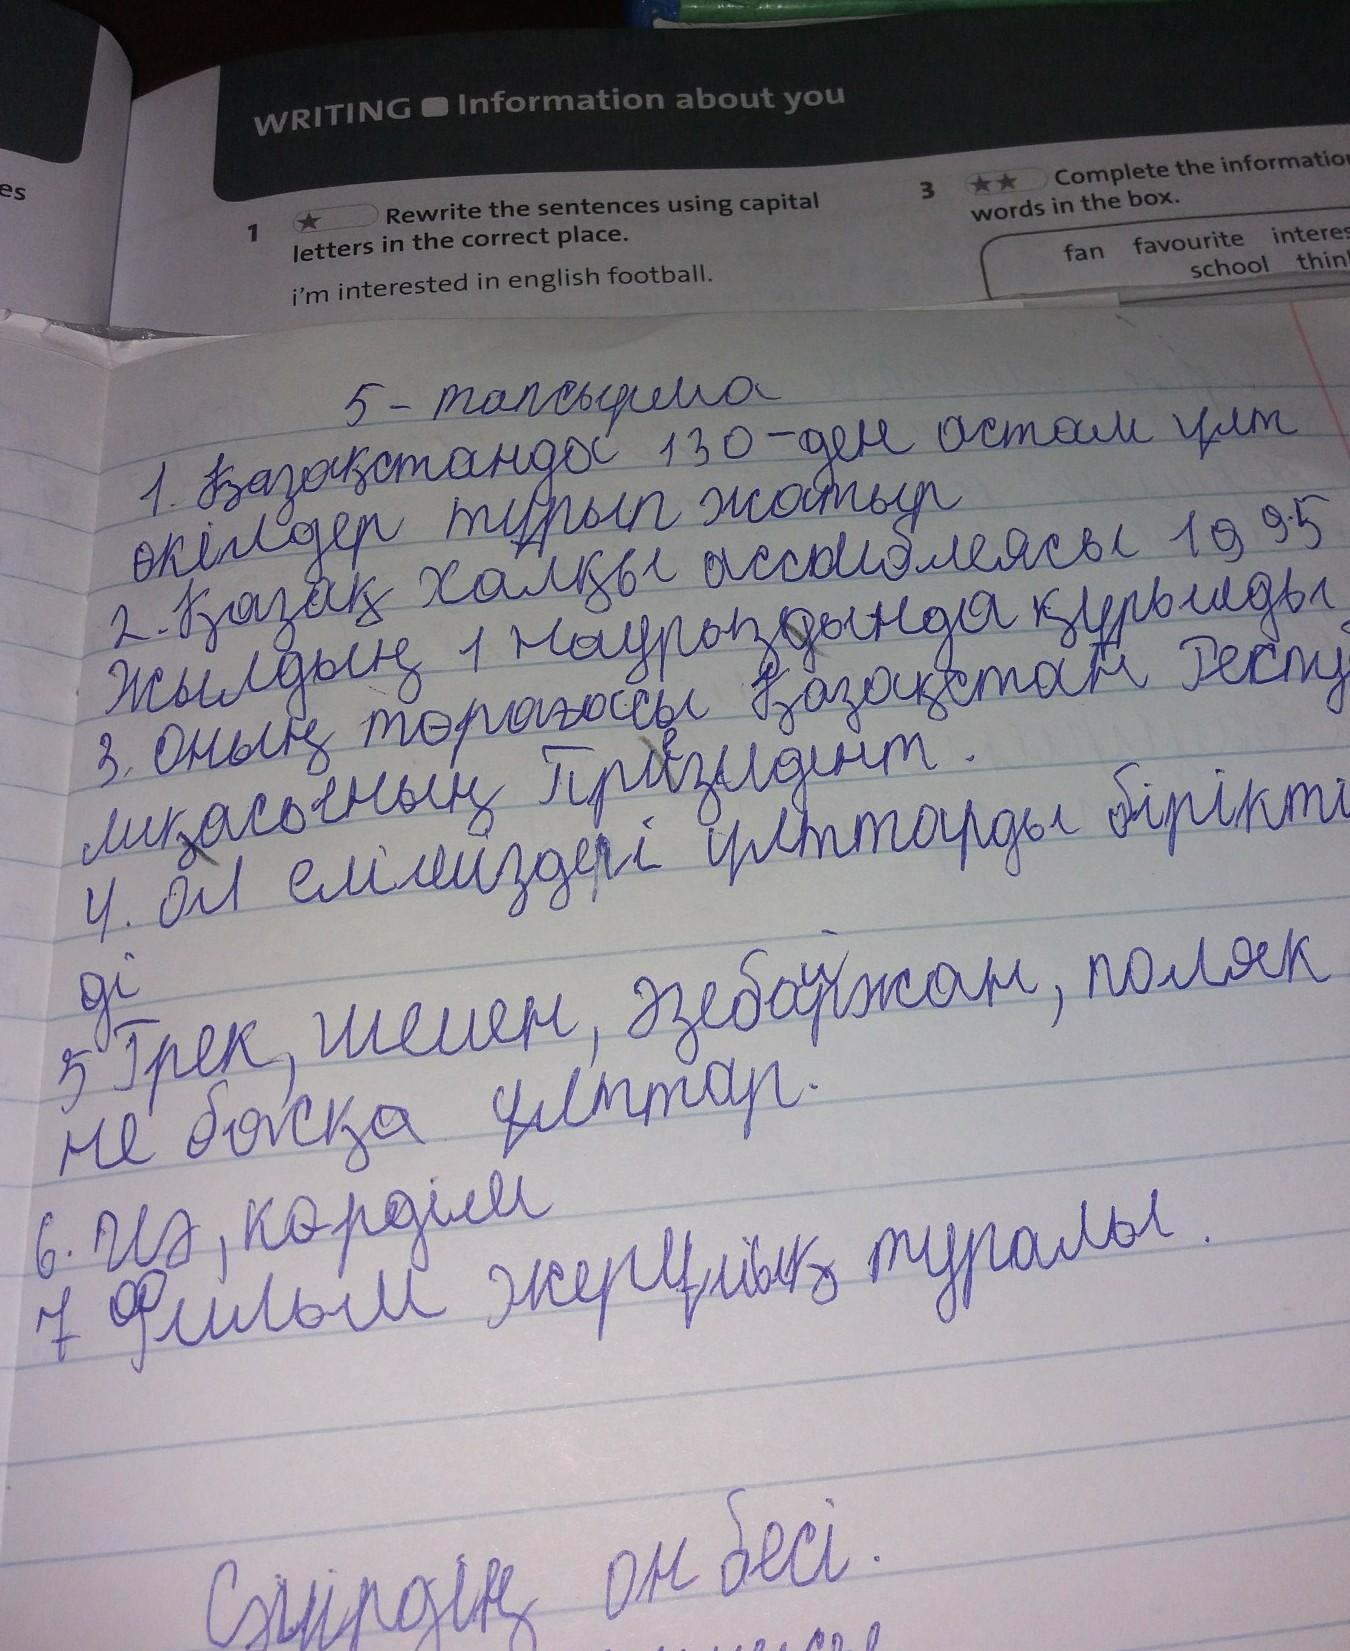 es
WRITING Information about you
1 Rewrite the sentences using capital
letters in the correct place.
i'm interested in english football.
3 Complete the informatio
words in the box.
fan favourite interes
school thin
5 - тапсырма
1. Қазақстанда 130-ден астам ұлт
өкілдер тұрып жатыр
2. Қазақ халқы ассамблеясы 1995
жылдың 1 Наурызында құрылды
3. Оның төрағасы Қазақстан Респу
ликасының Президент.
4. Ол еліміздегі ұлттарды бірікті
ді
5 Грек, шешен, әзебайжан, поляк
не басқа ұлттар.
6. Иә, көрдім
7 Фильм жерұйық туралы.
Сәуірдің он бесі.